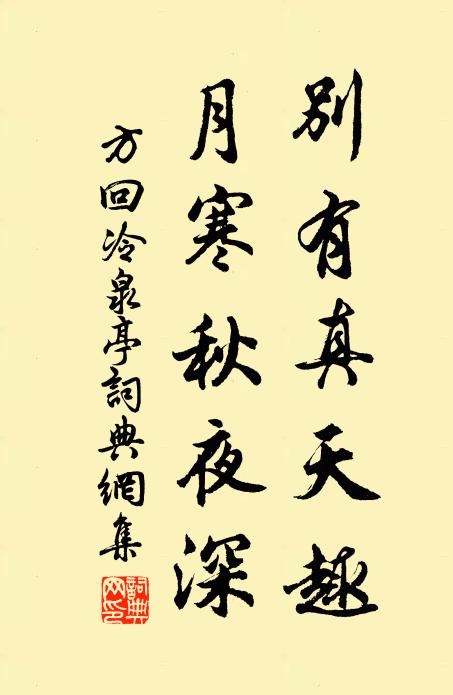 別有真天趣
月寒秋夜深
方回冷泉亭詞典網集
詞典网印